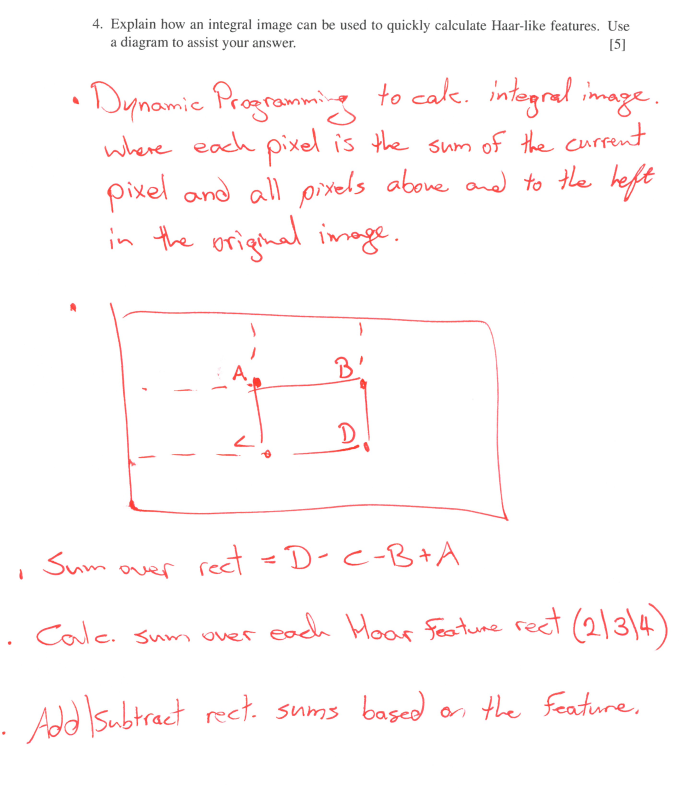 4. Explain how an integral image can be used to quickly calculate Haar-like features. Use
a diagram to assist your answer. [5]
• Dynamic Programming to calc. integral image.
where each pixel is the sum of the current
pixel and all pixels above and to the left
in the original image.
A B
C D
Sum over rect = D - C - B + A
• Calc. sum over each Haar Feature rect (2/3/4)
• Add/Subtract rect. sums based on the feature.